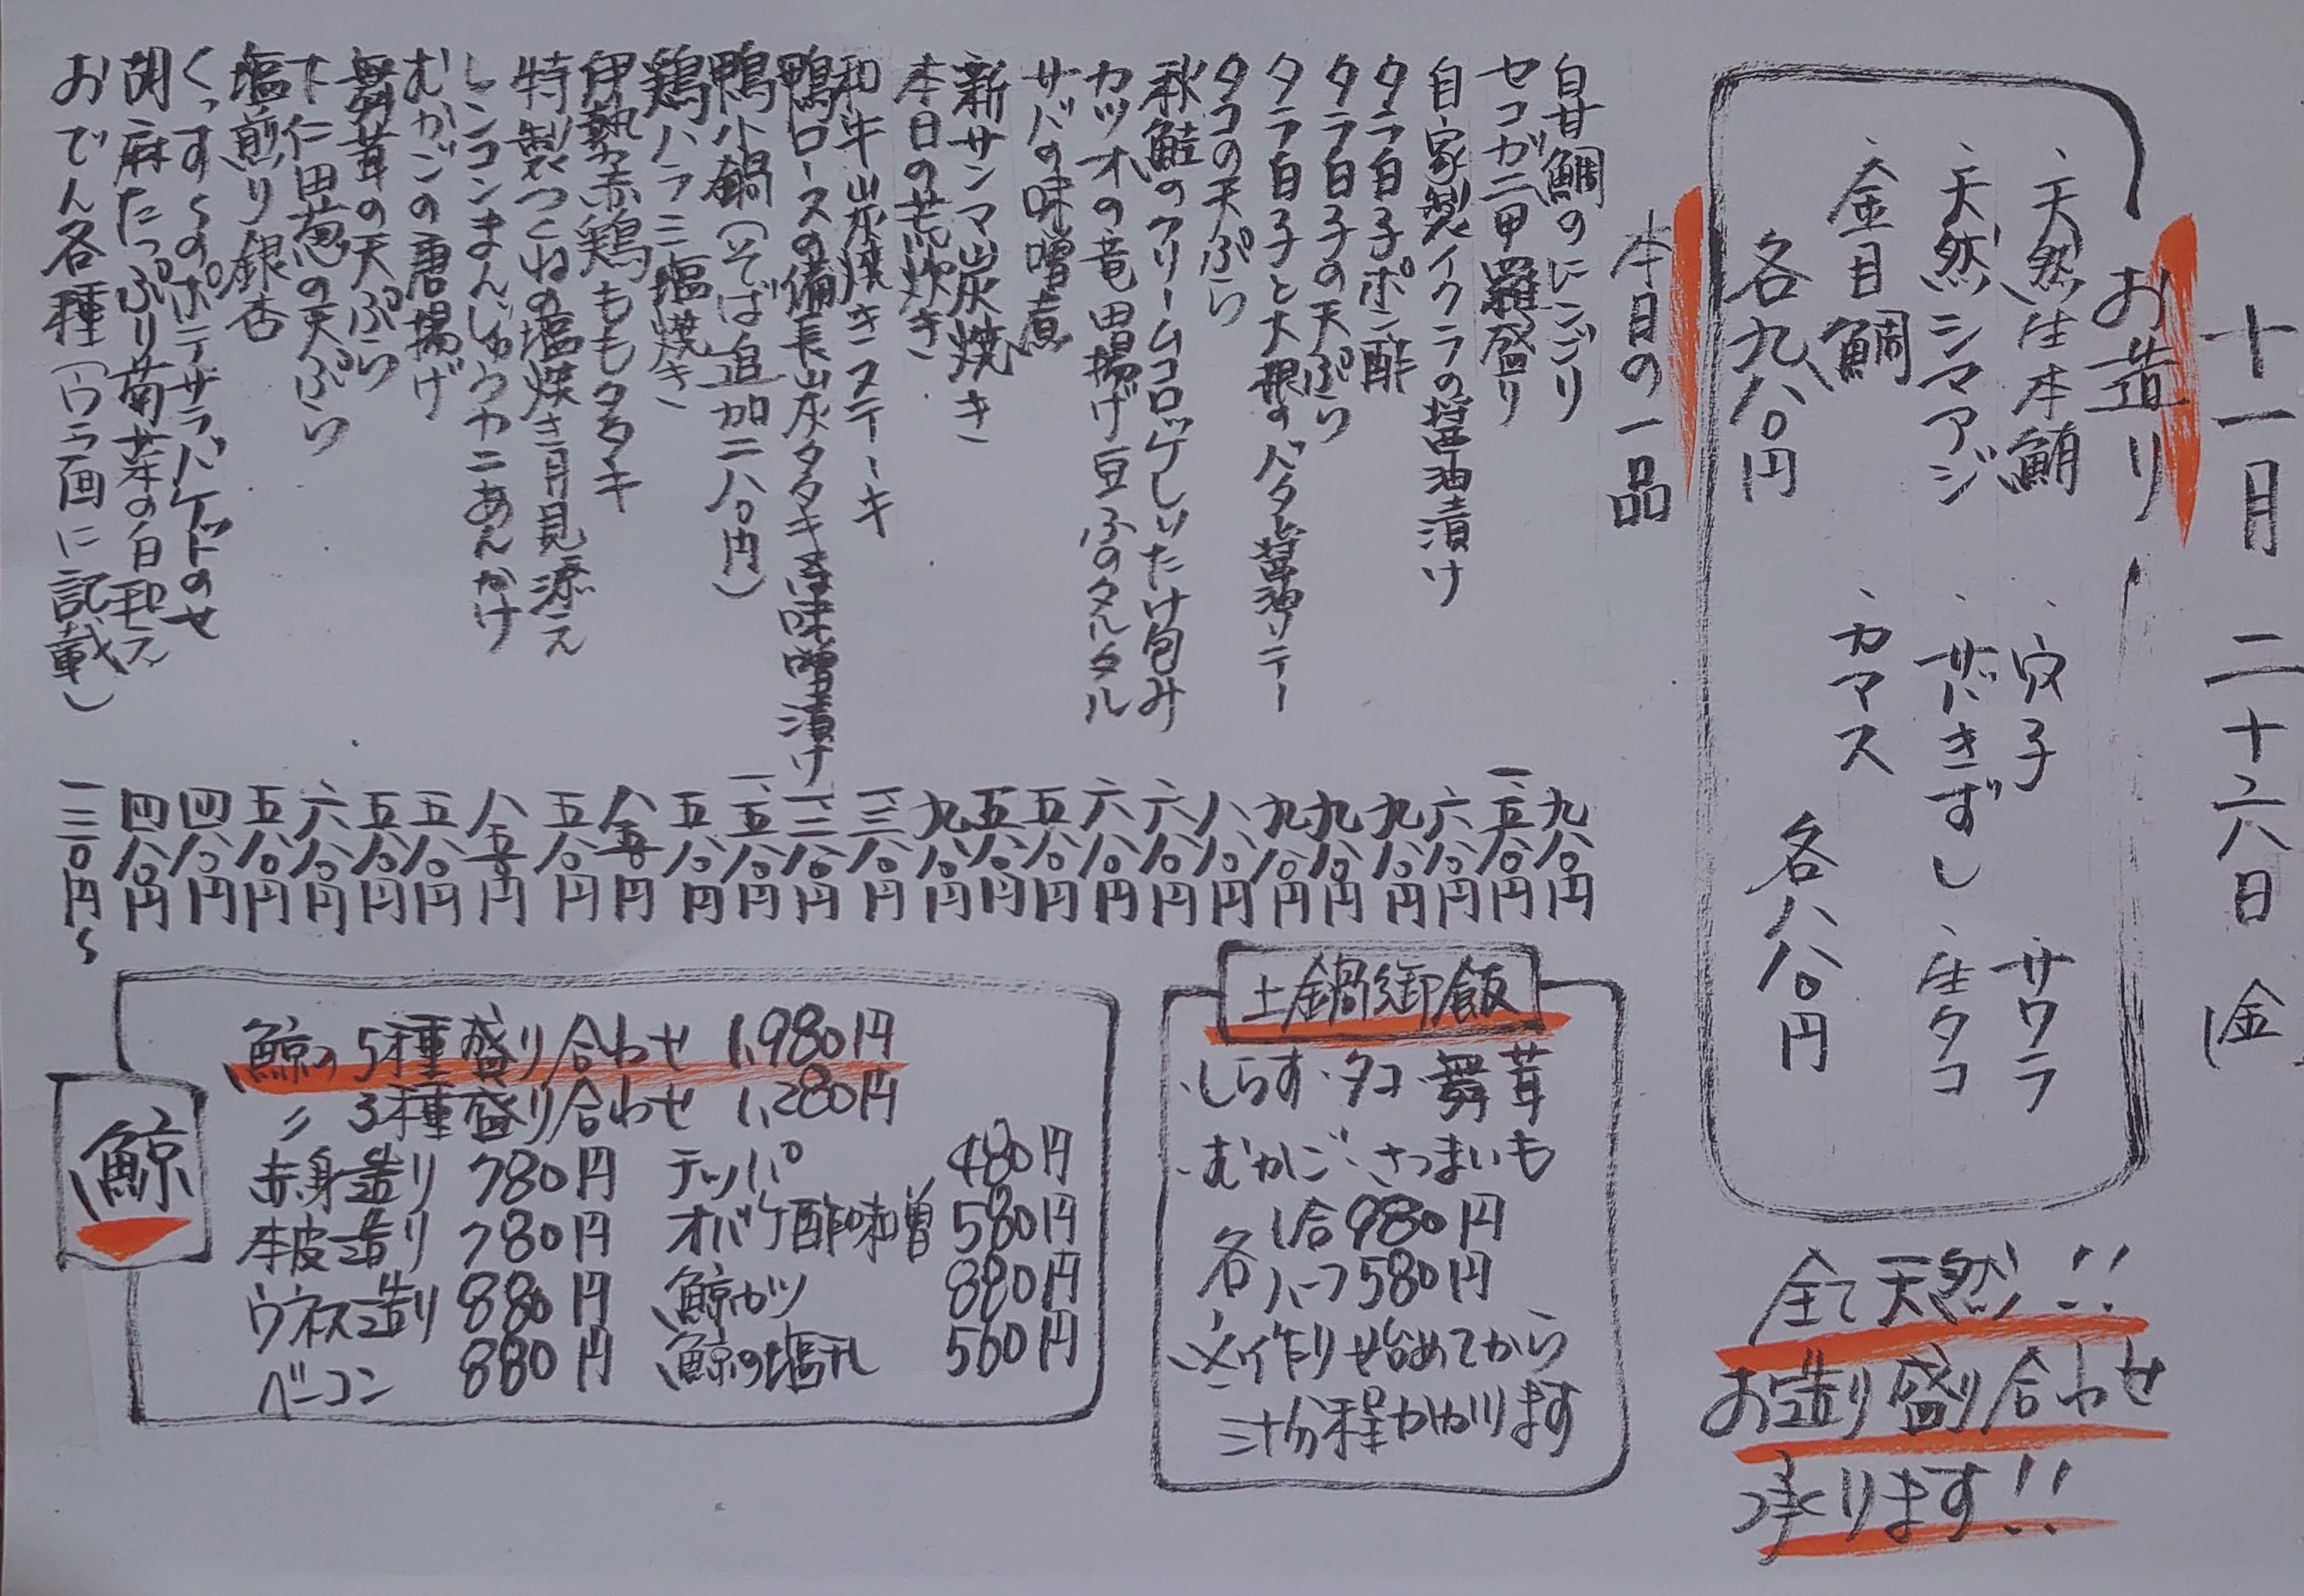 十一月二十六日(金)
お造り
、天然生本鮪 、穴子 、サワラ
、天然シマアジ 、サバきずし 、生タコ
、金目鯛 、カマス
各九八〇円 各八八〇円
全て天然!!
お造り盛り合わせ
承ります!!
本日の一品
白甘鯛のにこごり 九八〇円
セコガニ甲羅盛り 一、五八〇円
自家製イクラの醤油漬け 六八〇円
タラ白子ポン酢 九八〇円
タラ白子の天ぷら 九八〇円
タラ白子と大根のバタと醤油ソテー 九八〇円
タコの天ぷら 八八〇円
秋鮭のクリームコロッケしいたけ包み 六八〇円
カツオの竜田揚げ豆ふのタルタル 六八〇円
サバの味噌煮 五八〇円
新サンマ炭焼き 五八〇円
本日の荒炊き 九八〇円
和牛炭焼きステーキ
鴨ロースの備長炭タタキ 味噌漬け
鴨小鍋(そば追加二八〇円) 一、五八〇円
鶏ハラミ塩焼き 五八〇円
伊勢赤鶏ももタタキ 八五〇円
特製つくねの塩焼き月見添え 五八〇円
レンコンまんじゅうカニあんかけ 八五〇円
むかごの唐揚げ 五八〇円
舞茸の天ぷら 五八〇円
下仁田葱の天ぷら 六八〇円
塩煎り銀杏 五八〇円
くっすーのポテサラバケットのせ 四八〇円
胡麻たっぷり菊菜の白和え 四八〇円
おでん各種(ウラ面に記載) 一三〇円〜
土鍋御飯
・しらす・タコ・舞茸
・むかご・さつまいも
各 1合980円
ハーフ580円
※作り始めてから
三十分程かかります
鯨
鯨の5種盛り合わせ 1,980円
〃 3種盛り合わせ 1,280円
赤身造り 780円 テッパ 480円
本皮造り 780円 オバケ酢味噌 580円
ウネス造り 880円 鯨カツ 880円
ベーコン 880円 鯨の塩 560円